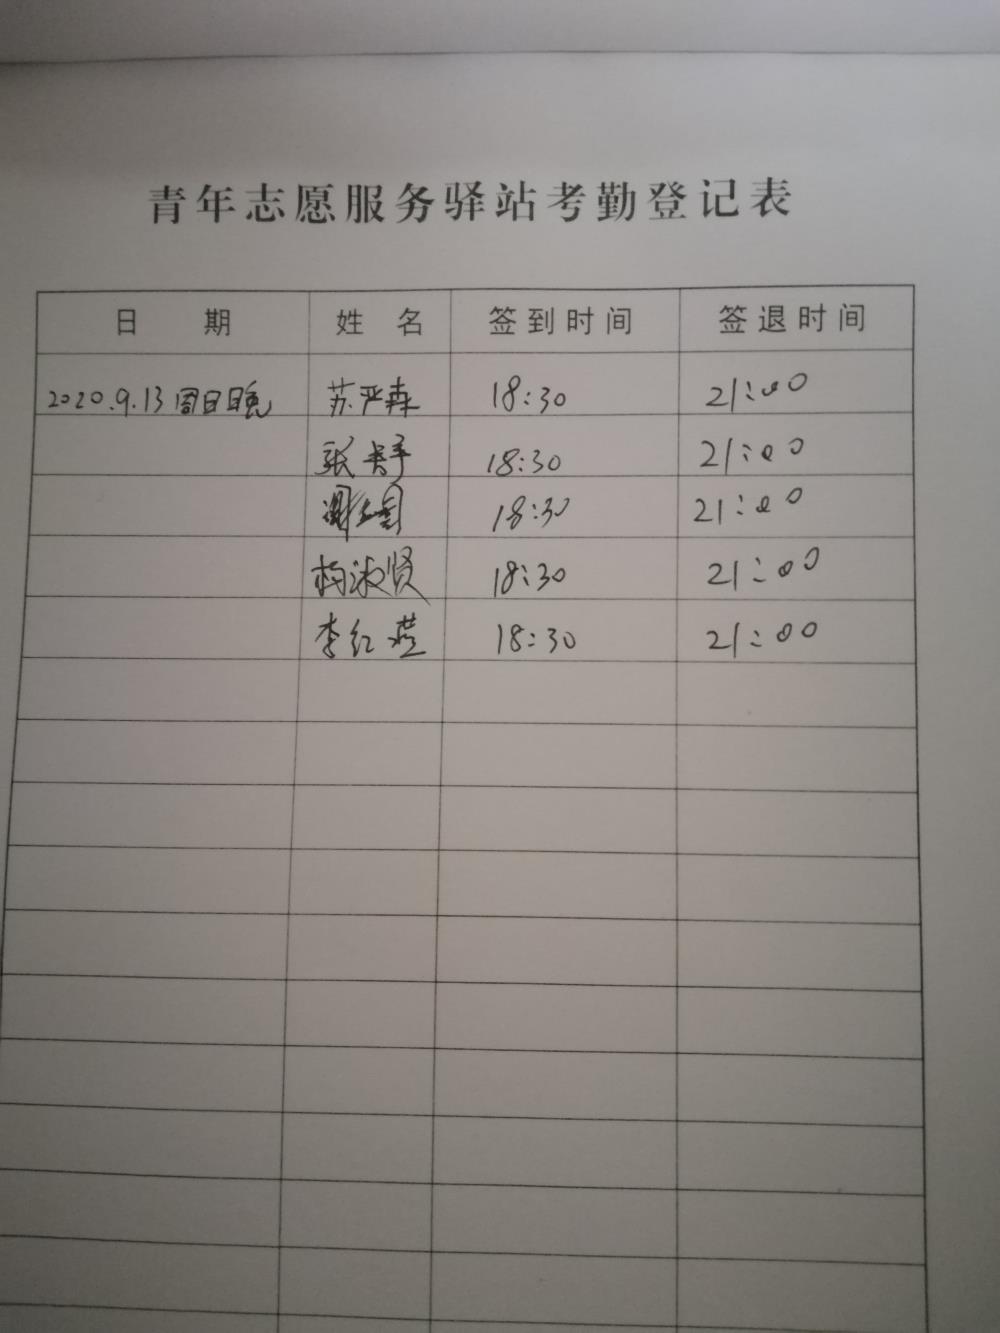 青年志愿服务驿站考勤登记表
日 期 姓 名 签到时间 签退时间
2020.9.13 周日晚 苏严森 18:30 21:00
张 18:30 21:00
18:30 21:00
杨淑贤 18:30 21:00
李红燕 18:30 21:00